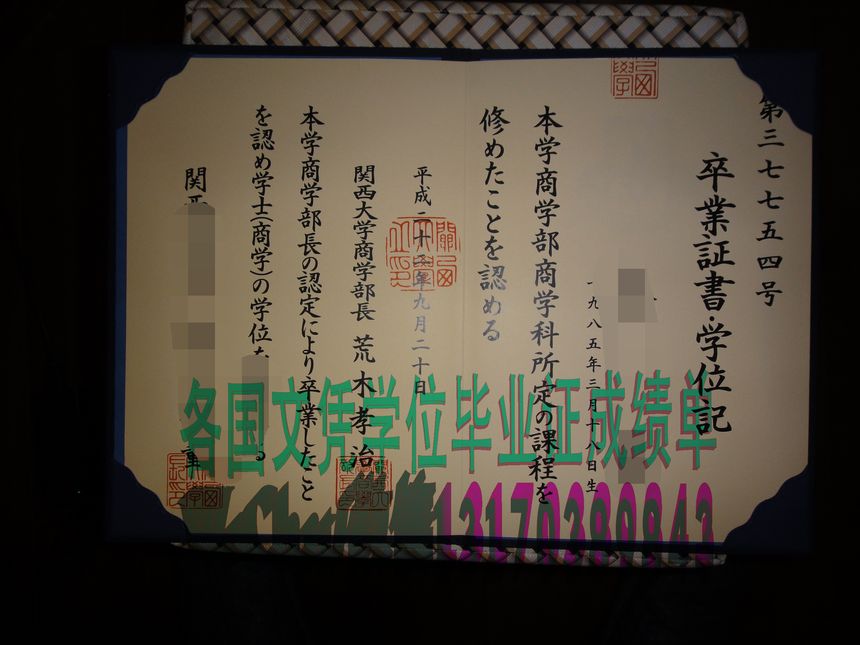 第三七七五四号
卒業証書・学位記
一九八五年三月十八日生
本学商学部商学科所定の課程を
修めたことを認める
平成二十四年九月二十日
関西大学商学部長 荒木孝治
本学商学部長の認定により卒業したこと
を認め学士(商学)の学位を
る
関西
章
各国文凭学位毕业证成绩单
13170389843